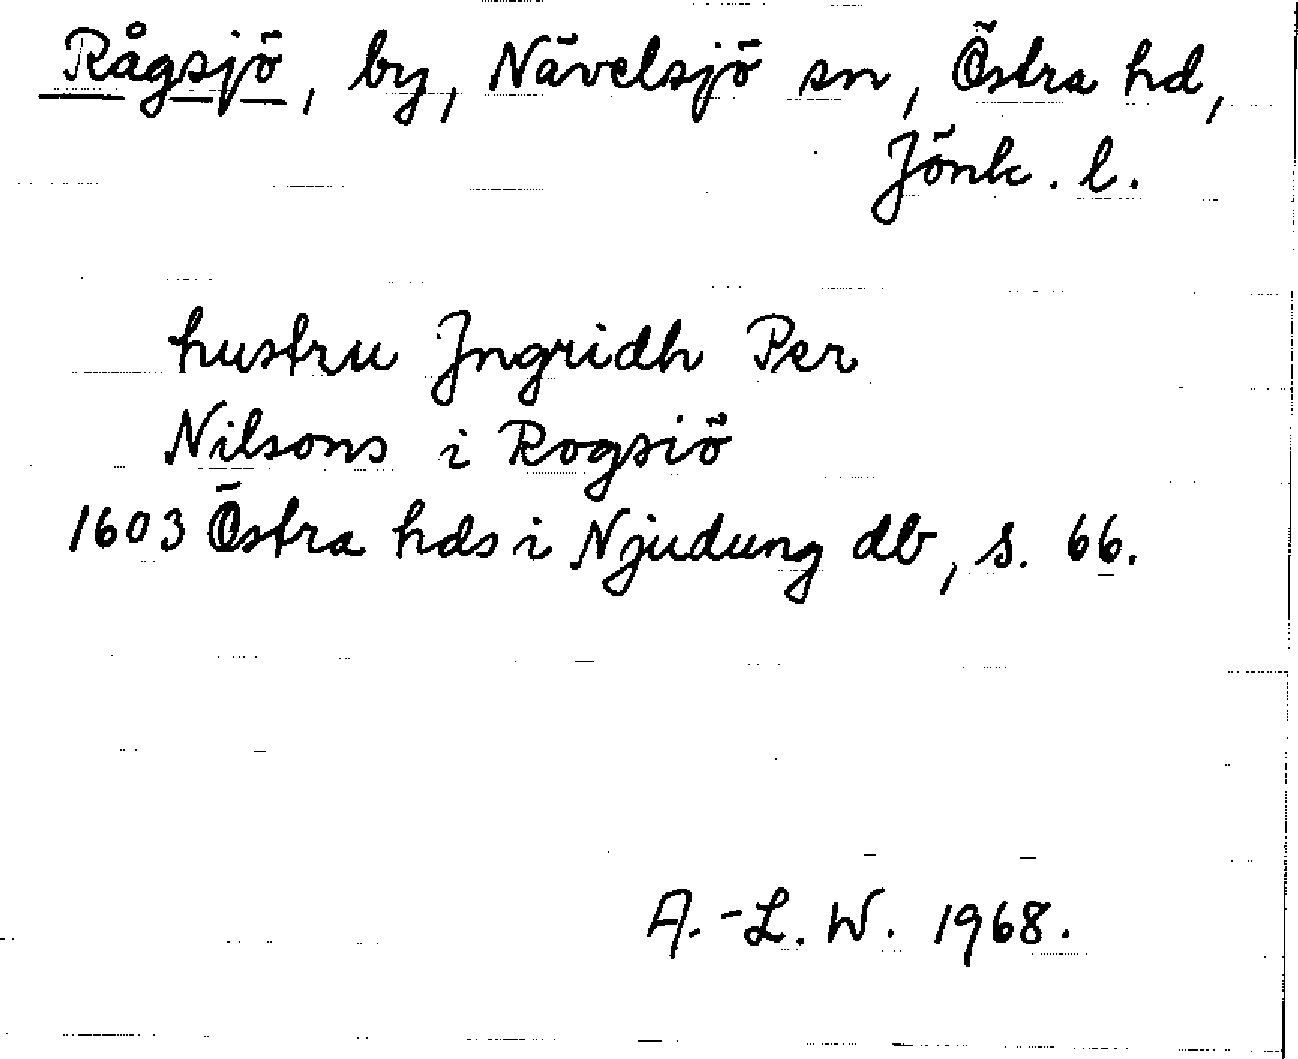 Rågsjö, by, Nävelsjö sn, Östra hd,
Jönk. l.
hustru Jngridh Per
Nilsons i Rogsiö
1603 Östra hds i Njudung db, s. 66.
A.-L. W. 1968.